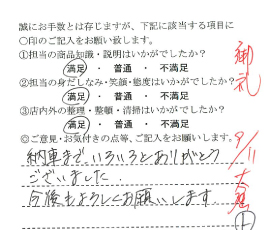 誠にお手数とは存じますが、下記に該当する項目に
○印のご記入をお願い致します。
①担当の商品知識・説明はいかがでしたか？
満足 ・ 普通 ・ 不満足
②担当の身だしなみ・笑顔・態度はいかがでしたか？
満足 ・ 普通 ・ 不満足
③店内外の整理・整頓・清掃はいかがでしたか？
満足 ・ 普通 ・ 不満足
◎ご意見・お気付きの点等、ご記入をお願いします。
納車まで、いろいろとありがとう
ございました。
今後もよろしくお願いします
御礼
9/11